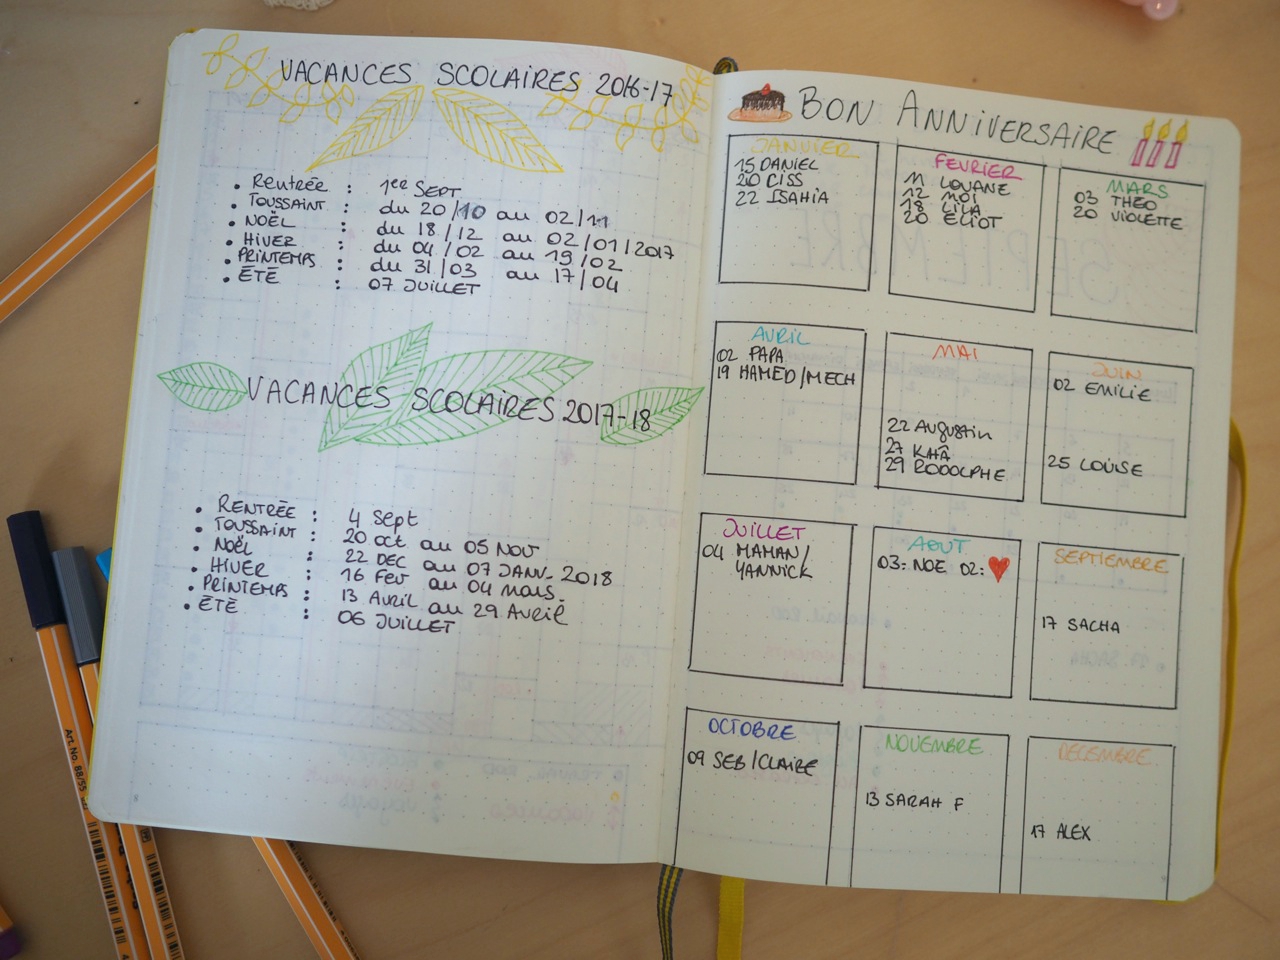 VACANCES SCOLAIRES 2016-17
• Rentrée : 1ere SEPT
• TOUSSAINT : du 20/10 au 02/11
• NOËL : du 18/12 au 02/01/2017
• HIVER : du 04/02 au 19/02
• PRINTEMPS : du 31/03 au 17/04
• ÉTÉ : 07 JUILLET
VACANCES SCOLAIRES 2017-18
• RENTRÉE : 4 Sept
• TOUSSAINT : 20 oct au 05 NOV
• NOËL : 22 DEC au 07 JANV. 2018
• HIVER : 16 Fev au 04 mars.
• PRINTEMPS : 13 Avril au 29 Avril
• ÉTÉ : 06 JUILLET
BON ANNIVERSAIRE
JANVIER
15 DANIEL
20 CISS
22 ISAHIA
FEVRIER
11 LOUANE
12 MOI
18 LILA
20 ELIOT
MARS
03 THEO
20 VIOLETTE
AVRIL
02 PAPA
19 HAMED/MECH
MAI
22 Augustin
27 KHÂ
29 RODOLPHE
JUIN
02 EMILIE
25 LOUISE
JUILLET
04 MAMAN/
YANNICK
AOUT
03: NOE 02: ♥
SEPTIEMBRE
17 SACHA
OCTOBRE
09 SEB/CLAIRE
NOVEMBRE
13 SARAH F
DECEMBRE
17 ALEX
Art. No. 88/55